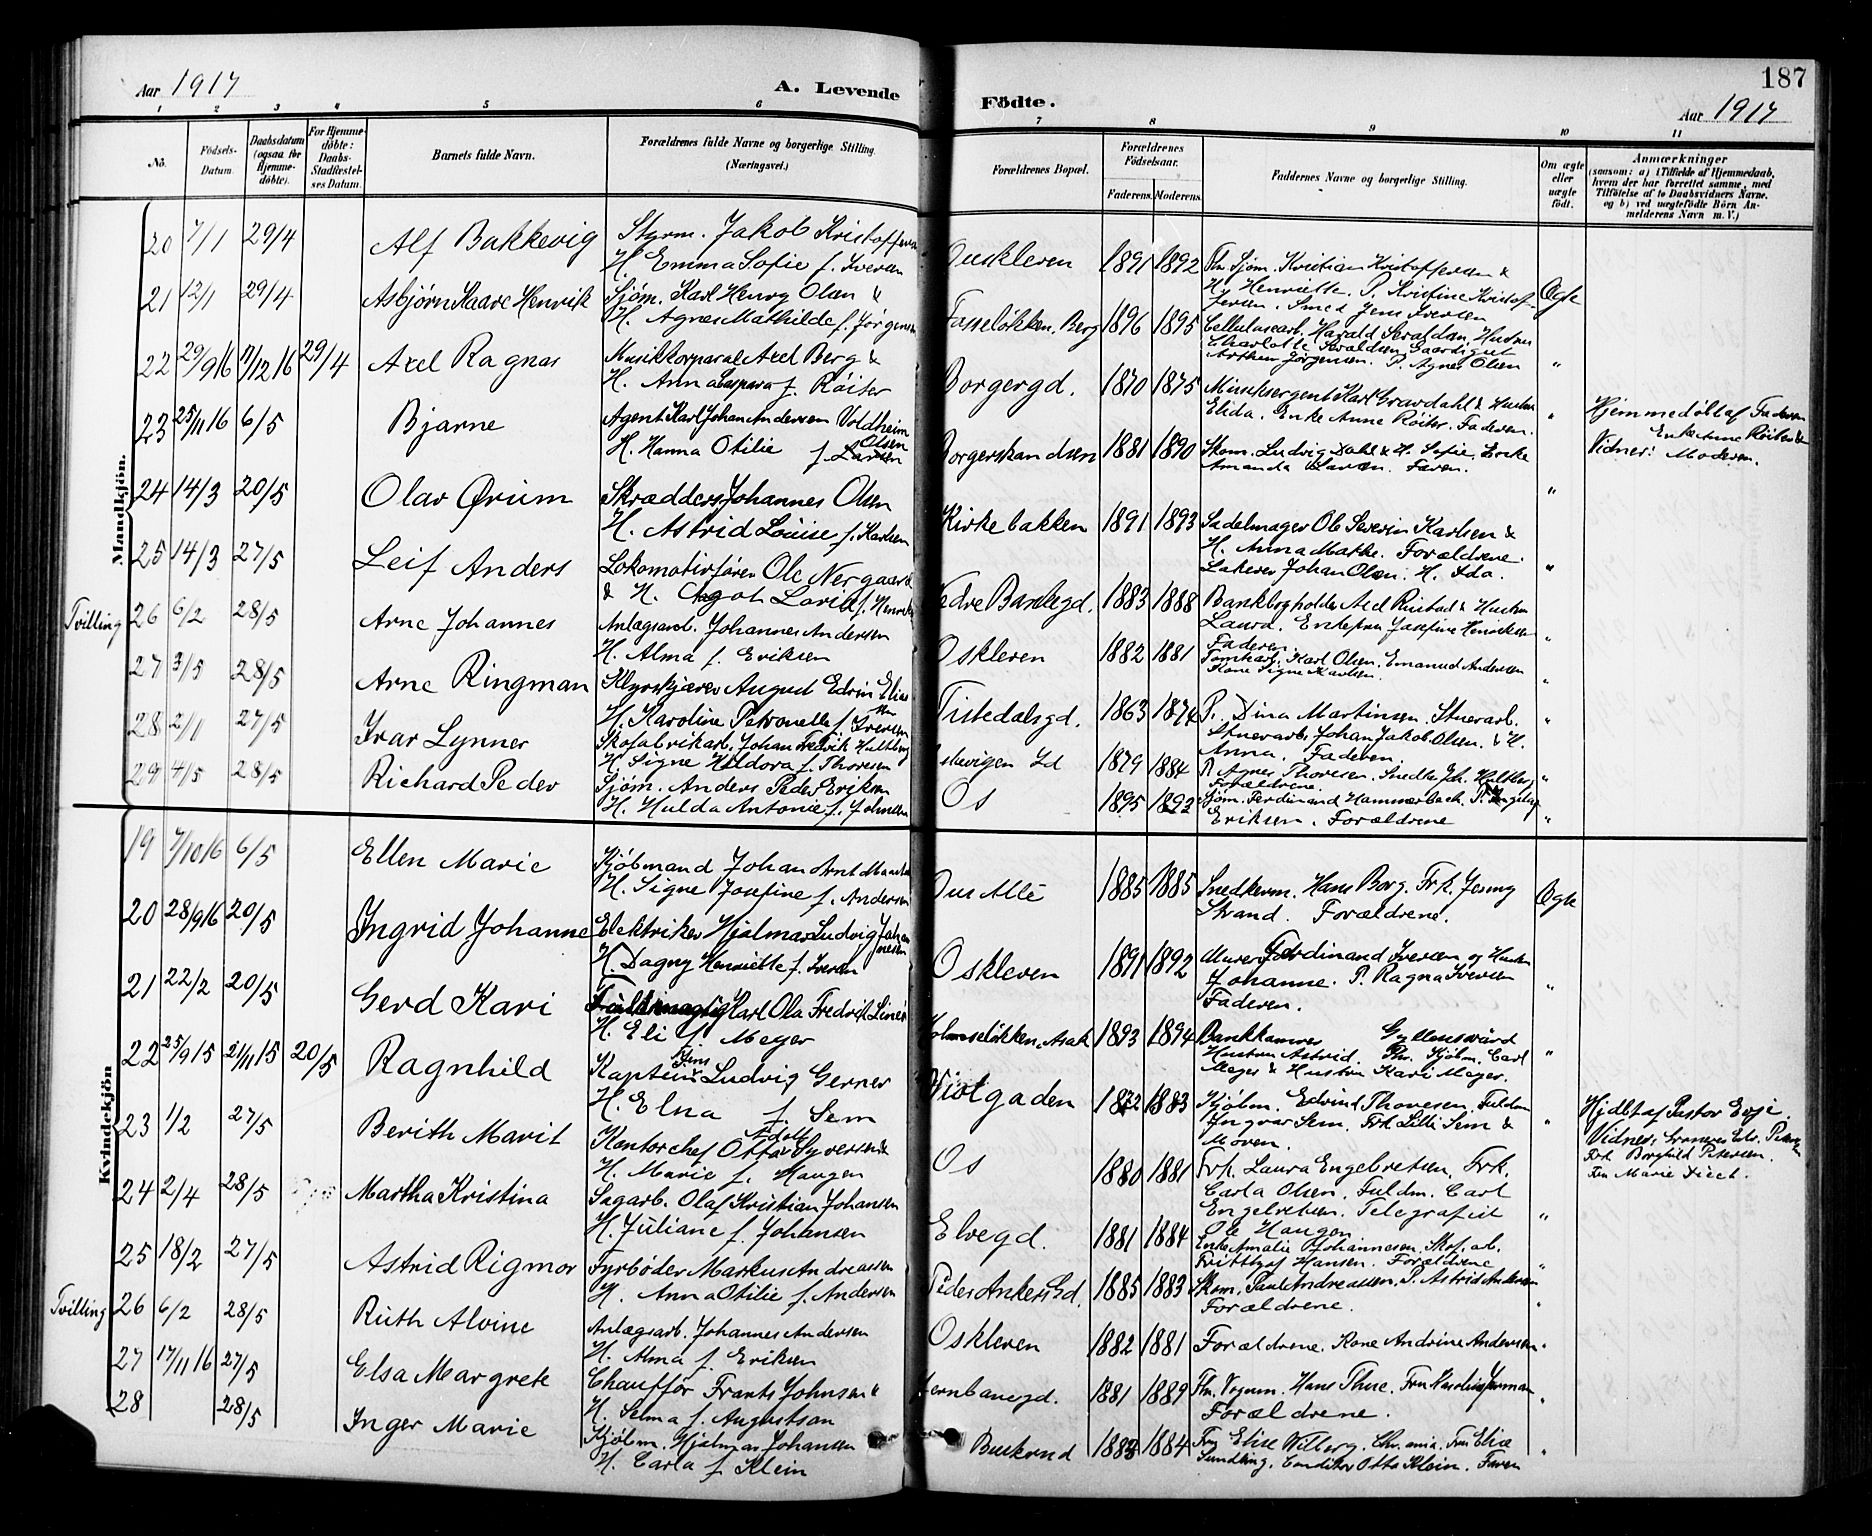 187
Aar 1917
A. Levende
Födte.
Aar 1917
1 2 3 4 5 6 7 8 9 10 11
No.
Födsels-Datum.
Daabsdatum (ogsaa for Hjemme-döbte).
For Hjemme-döbte: Daabs-Stadfæstel-ses Datum.
Barnets fulde Navn.
Forældrenes fulde Navne og borgerlige Stilling. (Næringsvei.)
Forældrenes Bopæl.
Forældrenes Födselsaar.
Faderens. Moderens.
Faddernes Navne og borgerlige Stilling.
Om ægte eller uægte födt.
Anmærkninger
(saasom: a) i Tilfælde af Hjemmedaab, hvem der har forrettet samme, med Tilföielse af to Daabsvidners Navne. og b) ved uægtefödte Börn An-melderens Navn m. V.)
Mandkjön.
20 7/1 29/4 Alf Bakkevig Styrm. Jakob Kristoffersen
H. Emma Sofie f. Iversen
Ouskleven 1891 1892 Fhv. Sjøm. Kristian Kristoffersen &
H. Henriette. P. Kristine Kristof-
fersen. Smed Jens Iversen
Ægte
21 12/1 29/4 Asbjørn Kaare Henrik Sjøm. Karl Henry Olsen &
H. Agnes Mathilde f. Jørgensen
Fasseløkken. Berg 1896 1895 Cellulosearb. Harald Svendsen, Hustru
Charlotte
Arthur Jørgensen. P. Agnes Olsen
"
22 29/9 16 7/12 16 29/4 Axel Ragnar Musikkorporal Axel Berg &
H. Anna Caspara f. Røiter
Borgergd. 1870 1875 Musiksergent Karl Gravdahl & Hustru
Elida. Enke Anne Røiter. Faderen.
"
Hjemmedøbt af Faderen
Enke Anne Røiter &
Vidner: Moderen.
23 25/11 16 6/5 Bjarne Agent Karl Johan Andersen Voldheim
H. Hanna Otilie f. Larsen Olsen
Borgerskandsen 1881 1890 Skom. Ludvig Dahl & H. Sofie. Enke
Amanda Larsen. Faren.
"
24 14/3 20/5 Olav Ørum Skrædders. Johannes Olsen
H. Astrid Louise f. Karlsen
Kirkebakken 1891 1893 Sadelmager Ole Severin Karlsen &
H. Anna Mathe. Forældrene.
"
25 14/3 27/5 Leif Anders Lokomotivfører Ole Nergaard
& H. Aagot Lovise f. Henriks
Nedre Banlegd. 1883 1888 Lakerer Johan Olsen. H. Ida.
Bankbogholder Axel Rustad & Hustru
Laura. Enkefru Josefine Henriksen
Faderen.
Tvilling 26 6/2 28/5 Arne Johannes Anlægsarb. Johannes Andersen
H. Alma f. Eriksen
Oskleven 1882 1881 Tomtkarl. Karl Olsen. Emanuel Andersen
Kone Signe Karlsen.
"
27 3/5 28/5 Arne Ringman August Edvin Elias
sen
H. Karoline Petronelle f. Iversen
Tistedalsgd. 1863 1874 P. Dina Martinsen. Stuerarb.
Stuerarb. Johan Jakob Olsen. & H.
Anna. Faderen.
"
28 2/1 27/5 Ivar Lynner Skofabrikarb. Johan Fredrik Hultberg
H. Signe Heldora f. Thoresen
1879 1884 P. Agnes Thoresen. Joh. Hultberg
Forældrene.
"
29 4/5 28/5 Richard Peder Sjøm. Anders Peder Eriksen
H. Hulda Antonie f. Johnsen
Os 1895 1892 Sjøm. Ferdinand Hammerbeck. P. Ingeborg
Eriksen. Forældrene
"
Kvindekjön
19 7/10 16 6/5 Ellen Marie Kjøbmand Johan Arnt
H. Signe Josefine f. Andersen
Ous Allé 1885 1885 Snedkerm. Hans Borg. Frk. Jenny
Strand. Forældrene.
Ægte
20 28/9 16 20/5 Ingrid Johanne Elektriker Hjalmar Ludvig Johan
nesen
H. Dagny Henriette f. Iversen
Oskleven 1891 1892 Murer Ferdinand Iversen og Hustru
Johanne. P. Ragna Iversen
Faderen.
"
21 22/2 20/5 Gerd Kari Fuldmægtig Karl Ola Fredrik Linér
H. Eli f. Meyer
Holmseløkken, Asak 1893 1894 Bankkasserer Gyllensvärd
Hustru Astrid. Fhv. Kjøbm. Carl
Meyer & Hustru Kari Meyer.
"
22 25/9 15 21/11 15 20/5 Ragnhild Kaptein Jens Ludvig Gerner
H. Elna f. Sem
Violgaden 1872 1883 Kjøbm. Edvind Thoresen. Fuldm
Yngvar Sem. Frk Lilli Sem &
Moren.
"
Hjdbt af Pastor Evje.
Vidner:
Frk Borghild Petersen.
Fru Marie Diect.
23 1/2 27/5 Berith Marit Kontorchef Otto Adolf Syversen &
H. Marie f. Haugen
Os 1880 1881 Frk. Laura Engebretsen. Frk.
Carla Olsen. Fuldm. Carl
Engebretsen. Telegrafist
Ole Haugen
"
24 2/4 28/5 Martha Kristina Sagarb. Olaf Kristian Johansen
H. Juliane f. Johansen
Elvegd. 1881 1884 Enke Amalie Johannesen. Skof. arb.
Frithjof Hansen. Forældrene
25 18/2 27/5 Astrid Rigmor Fyrbøder Markus Andreassen
H. Anna Otilie f. Andersen
Peder Ankers Gd. 1885 1883 Skom. Paul Andreassen, P. Astrid Andersen
Forældrene.
"
Tvilling 26 6/2 28/5 Ruth Alvine Anlægsarb. Johannes Andersen
H. Alma f. Eriksen
Oskleven 1882 1881 Forældrene. Kone Andrine Andersen
"
27 17/11 16 27/5 Elsa Margrete Chauffør Frants Johnsen &
H. Selma f. Augustson
Jernbanegd. 1881 1889 Fhv. Vognm. Hans Thue. Fru
Forældrene.
"
28 28/5 Inger Marie Kjøbm. Hjalmar Johansen
H. Carla f. Klein
1883 1884 Fru Elise Wilberg. Chr.ania. Fru Elise
Sundling. Conditor Otto Klein. Faren
"